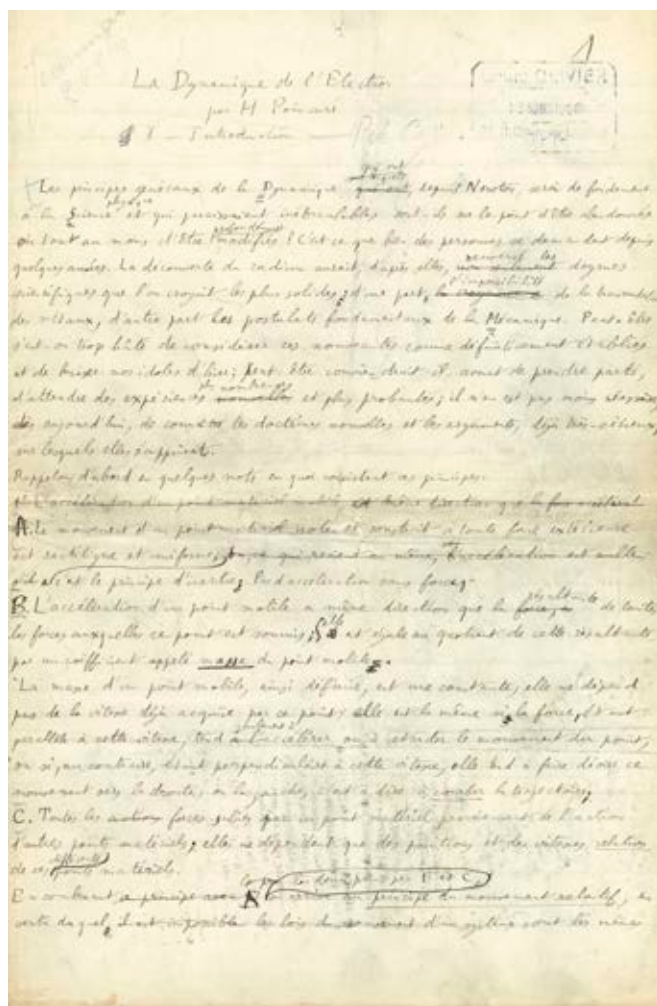 1
La Dynamique de l'Electron
par H Poincaré
I - Introduction
Les principes généraux de la Dynamique qui ont, depuis Newton, servi de fondement
à la Science physique et qui paraissaient inébranlables sont-ils sur le point d'être abandonnés
ou tout au moins d'être profondément modifiés ? C'est ce que bien des personnes se demandent depuis
quelques années. La découverte du radium aurait, d'après elles, renversé les dogmes
scientifiques que l'on croyait les plus solides; d'une part, l'impossibilité de la transmutation
des métaux, d'autre part les postulats fondamentaux de la Mécanique. Peut-être
s'est-on trop hâté de considérer ces nouveautés comme définitivement établies
et de briser nos idoles d'hier; peut-être conviendrait-il, avant de prendre parti,
d'attendre des expériences plus nombreuses et plus probantes; il n'en est pas moins nécessaire,
dès aujourd'hui, de connaître les doctrines nouvelles et les arguments, déjà très-sérieux,
sur lesquels elles s'appuient.
Rappelons d'abord en quelques mots en quoi consistent ces principes:
L'accélération d'un point matériel mobile, a même direction que la force
A. Le mouvement d'un point matériel isolé et soustrait à toute force extérieure
est rectiligne et uniforme; ce qui revient au même, l'accélération est nulle
c'est le principe d'inertie; Pas d'accélération sans force;
B. L'accélération d'un point mobile a même direction que la résultante de toutes
les forces auxquelles ce point est soumis; et égale au quotient de cette résultante
par un coefficient appelé masse du point mobile.
La masse d'un point mobile, ainsi définie, est une constante; elle ne dépend
pas de la vitesse déjà acquise par ce point; elle est la même si la force, étant
parallèle à cette vitesse, tend seulement à accélérer ou à retarder le mouvement du point,
ou si, au contraire, étant perpendiculaire à cette vitesse, elle tend à faire dévier ce
mouvement vers la droite, ou la gauche, c'est à dire à courber la trajectoire;
C. Toutes les forces subies par un point matériel proviennent de l'action
d'autres points matériels; elles ne dépendent que des positions et des vitesses relatives
de ces différents points matériels.
En combinant les deux principes B et C on arrive au principe du mouvement relatif, en
vertu duquel, les lois du mouvement d'un système sont les mêmes